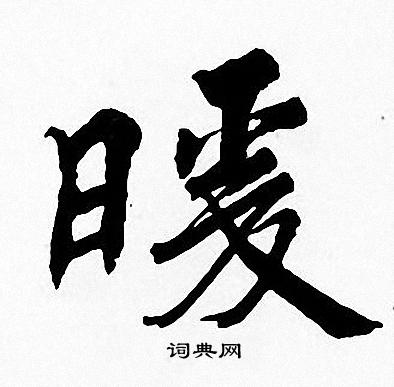 暖
词典网